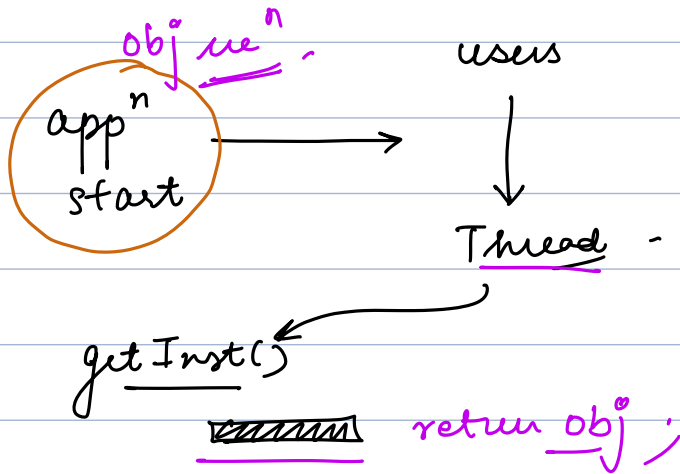 obj ueⁿ
users
appⁿ
start
Thread
getInst()
return obj ;